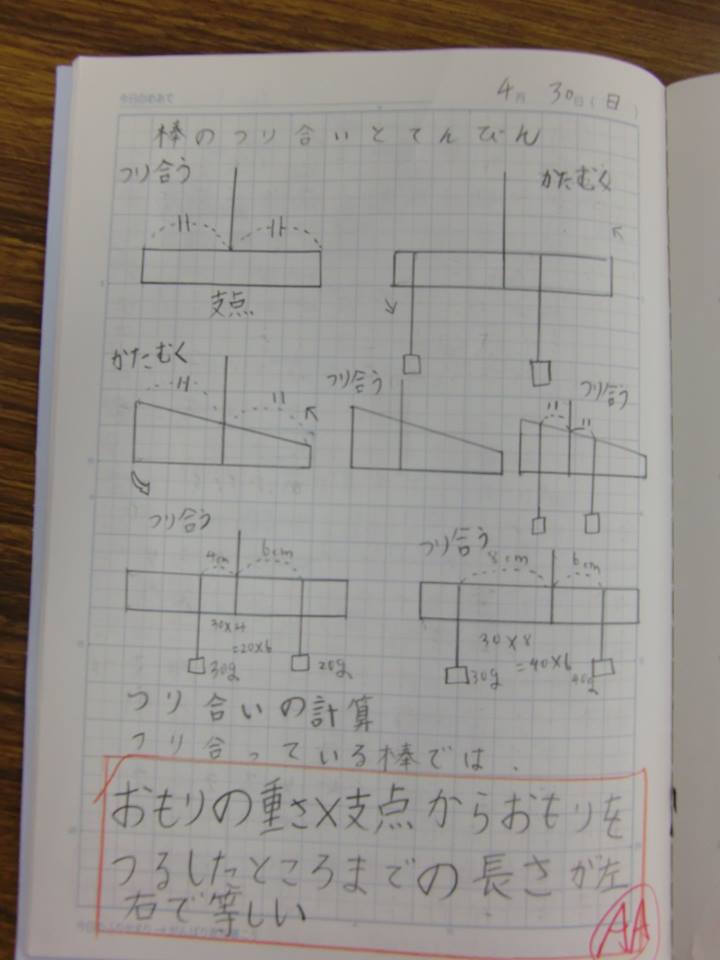 4月 30日(日)
棒のつり合いとてんびん
つり合う
かたむく
支点
かたむく
つり合う
つり合う
つり合う
4cm 6cm
30×4
=20×6
30g 20g
つり合う
8cm 6cm
30×8
=40×6
30g 40g
つり合いの計算
つり合っている棒では、
おもりの重さ×支点からおもりを
つるしたところまでの長さが左
右で等しい
AA